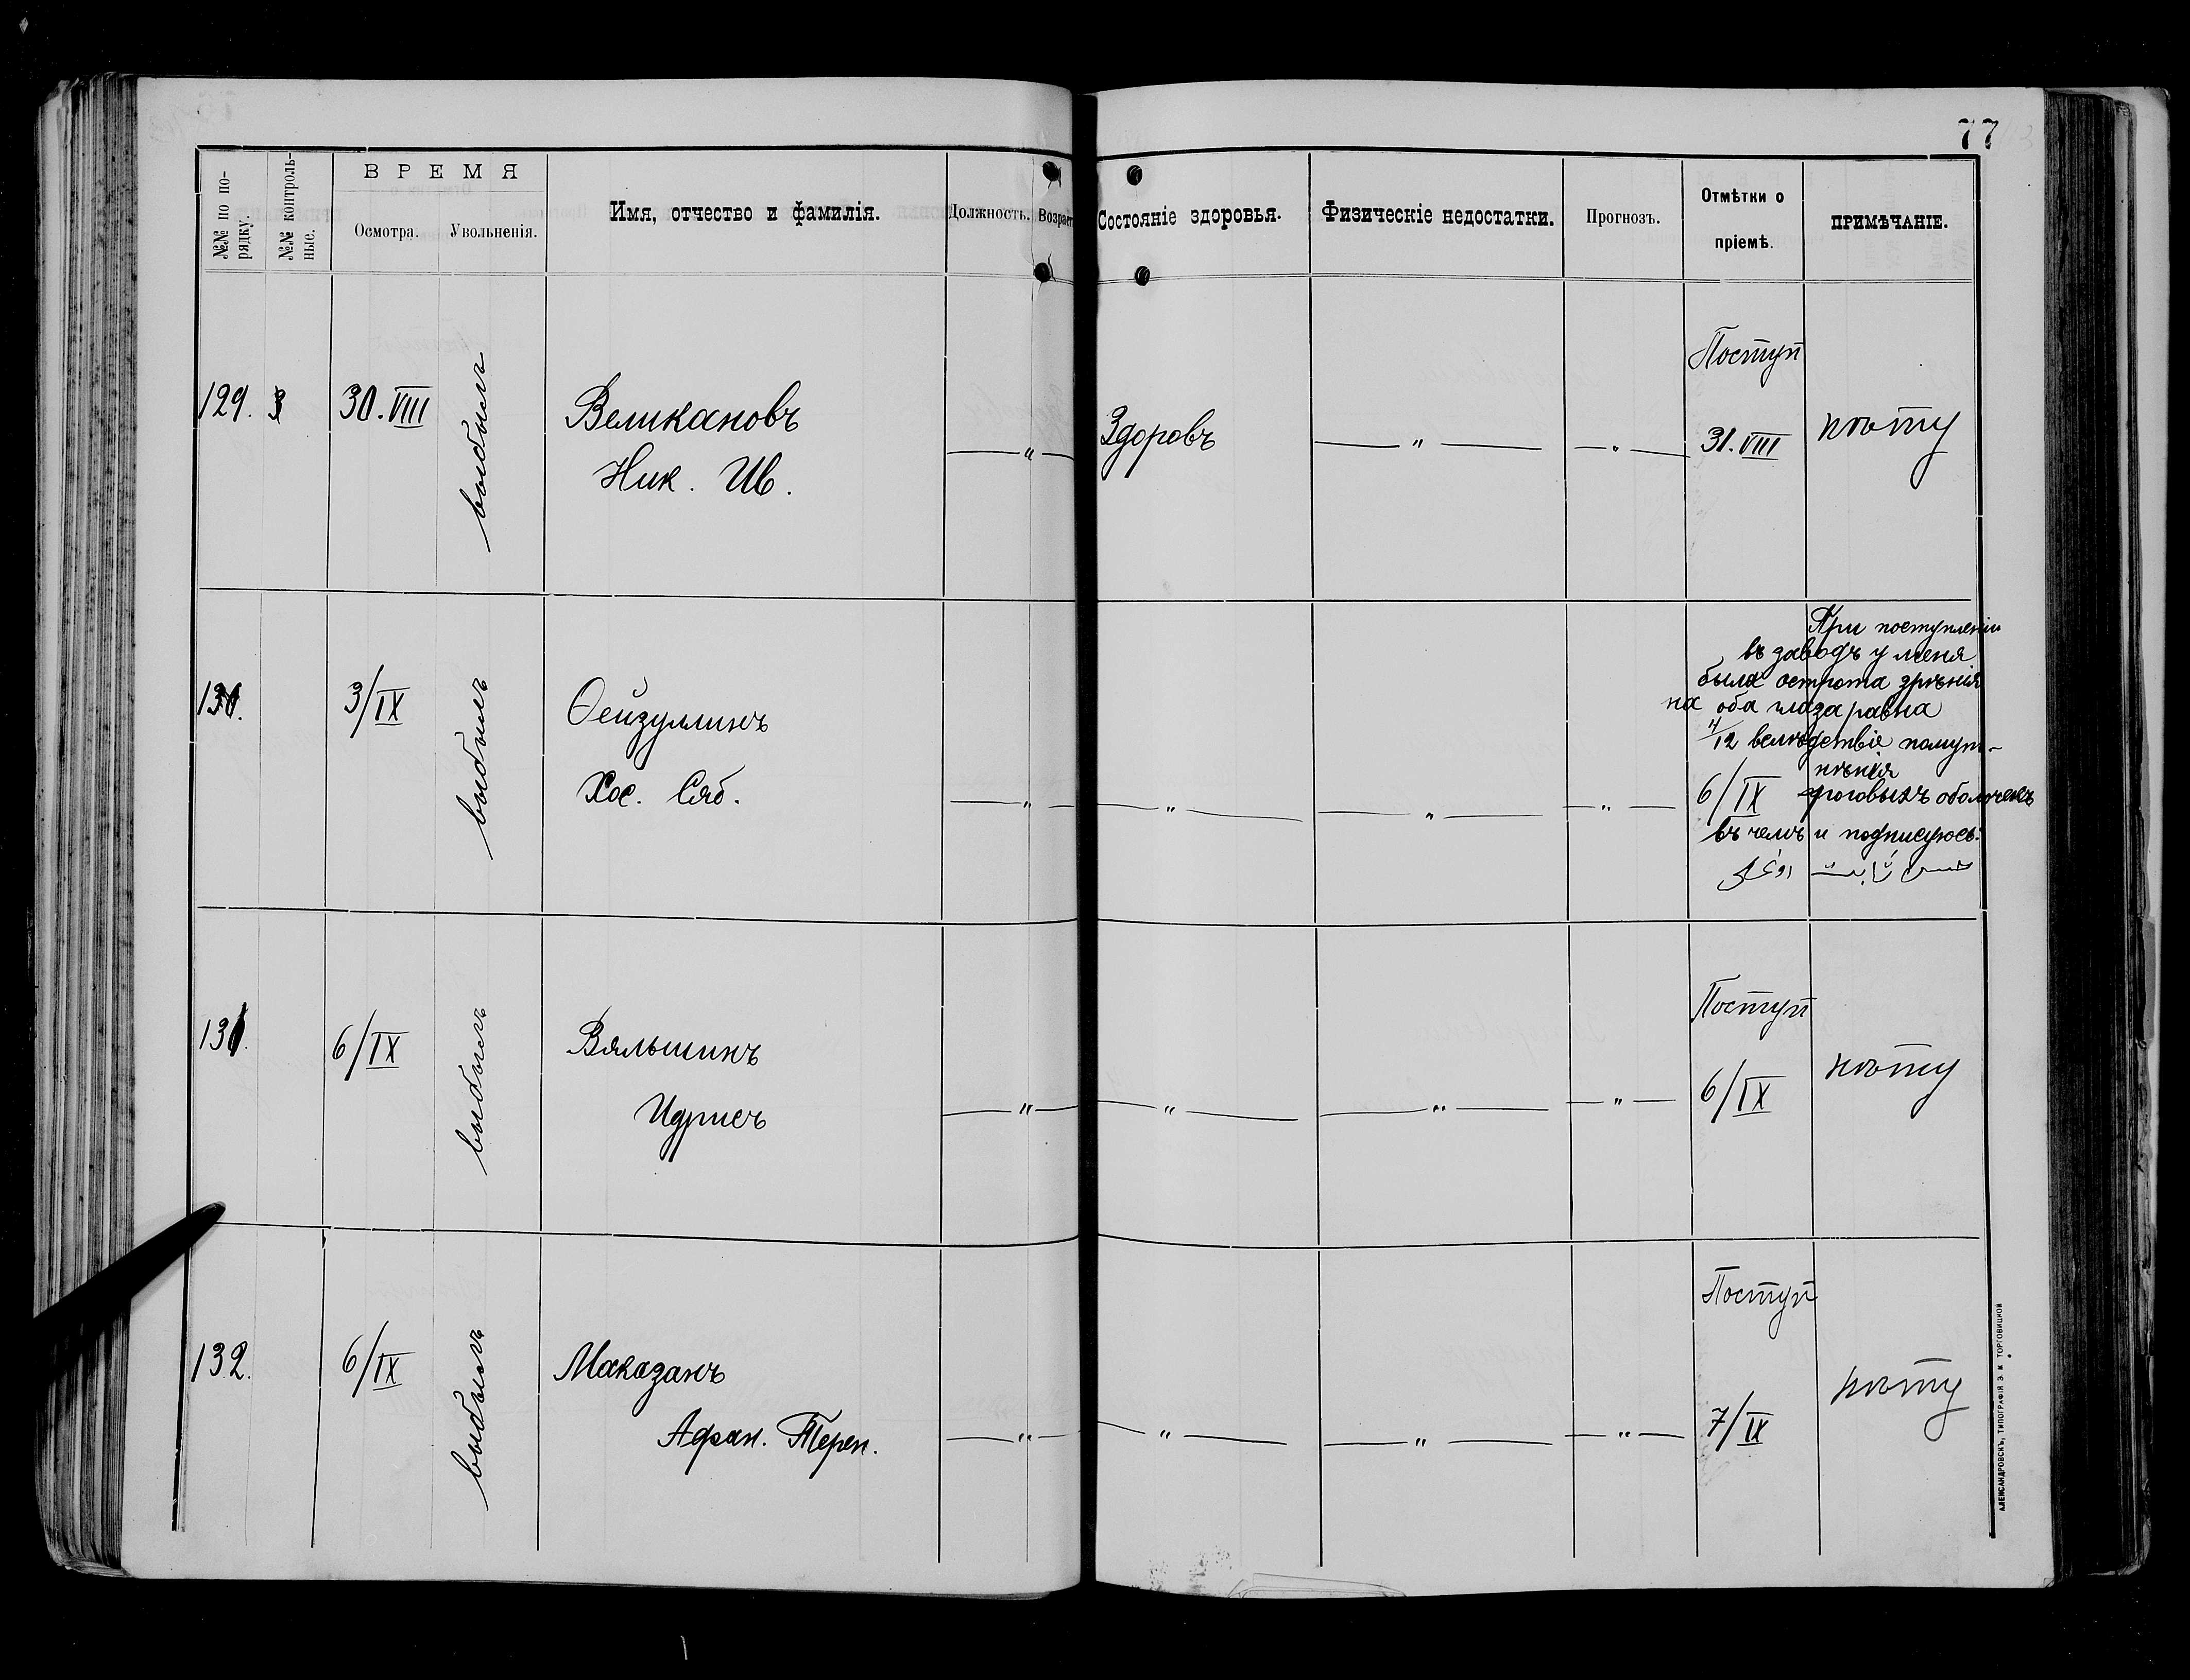 77
№№ по по-
рядку.
№№ контроль-
ные.
ВРЕМЯ
Осмотра.
Увольненія.
Имя, отчество и фамилія.
Должность.
Возраст
Состояніе здоровья.
Физическіе недостатки.
Прогнозъ.
Отмѣтки о
пріемѣ.
ПРИМѢЧАНІЕ.
129.
30.VIII
выбылъ
Великановъ
Ник. Ив.
— " —
Здоровъ
— " —
— " —
Поступ
31.VIII
нѣту
130.
3/IX
выбылъ
Ѳейзуллинъ
Хос. Сяб.
— " —
— " —
— " —
— " —
При поступленіи
въ заводъ у меня
была острота зрѣнія
на оба глаза равна
/12 вслѣдствіе помут-
нѣнія
6/IX роговыхъ оболочекъ
въ чемъ и подписуюсь:
131.
6/IX
выбылъ
Вяльшинъ
Идрисъ
— " —
— " —
— " —
— " —
Поступ
6/IX
нѣту
132.
6/IX
выбылъ
Маказанъ
Афан. Терен.
— " —
— " —
— " —
— " —
Поступ
7/IX
нѣту
АЛЕКСАНДРОВСКЪ, ТИПОГРАФІЯ Э. М. ТОРГОВИЦКОЙ